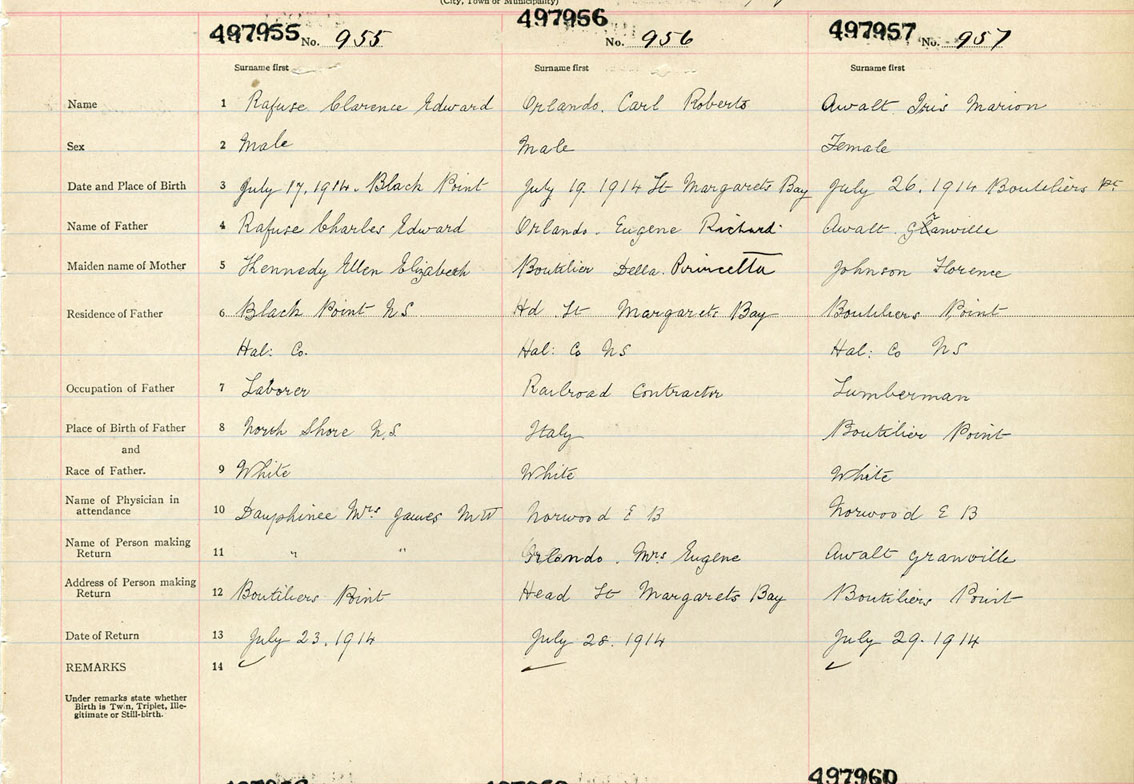 (City, Town or Municipality)
497955 No. 955 497956 No. 956 497957 No. 957
Surname first Surname first Surname first
Name 1 Rafuse Clarence Edward Orlando. Carl Roberts Awalt Iris Marion
Sex 2 Male Male Female
Date and Place of Birth 3 July 17, 1914. Black Point July 19. 1914 St Margarets Bay July 26. 1914 Boutiliers Pt
Name of Father 4 Rafuse Charles Edward Orlando. Eugene Richard Awalt Granville
Maiden name of Mother 5 Kennedy Ellen Elizabeth Boutilier Della. Princetta Johnson Florence
Residence of Father 6 Black Point N.S. Hd St Margarets Bay Boutiliers Point
Hal: Co. Hal: Co NS Hal: Co NS
Occupation of Father 7 Laborer Railroad Contractor Lumberman
Place of Birth of Father 8 North Shore N.S. Italy Boutilier Point
and
Race of Father. 9 White White White
Name of Physician in
attendance 10 Dauphinee Mrs James Norwood E B Norwood E B
Name of Person making
Return 11 " " Orlando. Mrs Eugene Awalt Granville
Address of Person making
Return 12 Boutiliers Point Head St Margarets Bay Boutiliers Point
Date of Return 13 July 23. 1914 July 28. 1914 July 29. 1914
REMARKS 14
Under remarks state whether
Birth is Twin, Triplet, Ille-
gitimate or Still-birth.
497960